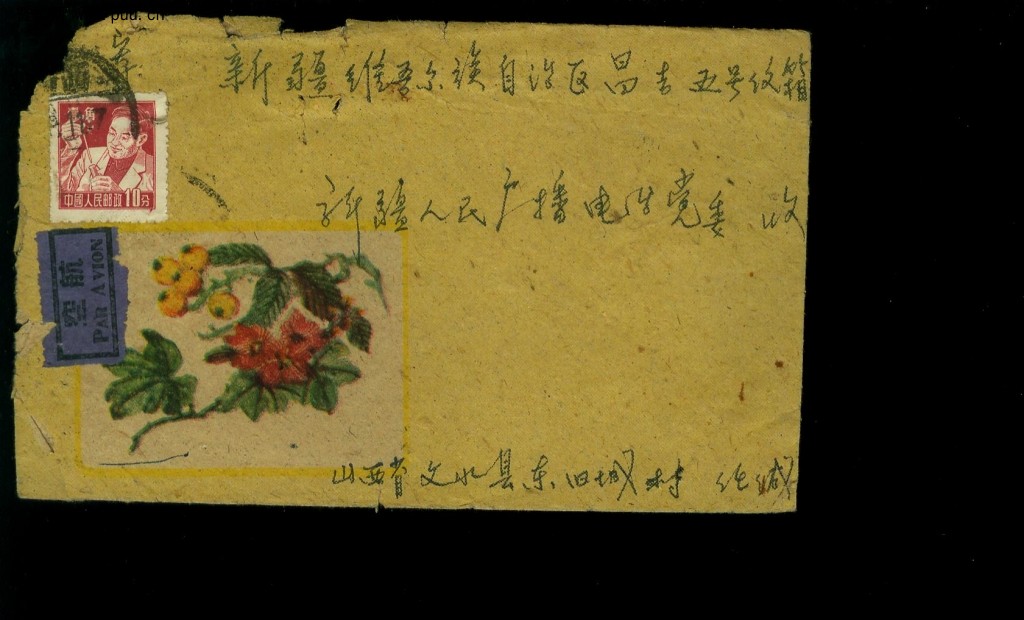 新疆维吾尔族自治区昌吉五号仪箱
新疆人民广播电台党委 收
中國人民邮政 10分
航空
PAR AVION
山西省文水县东旧城村 任缄